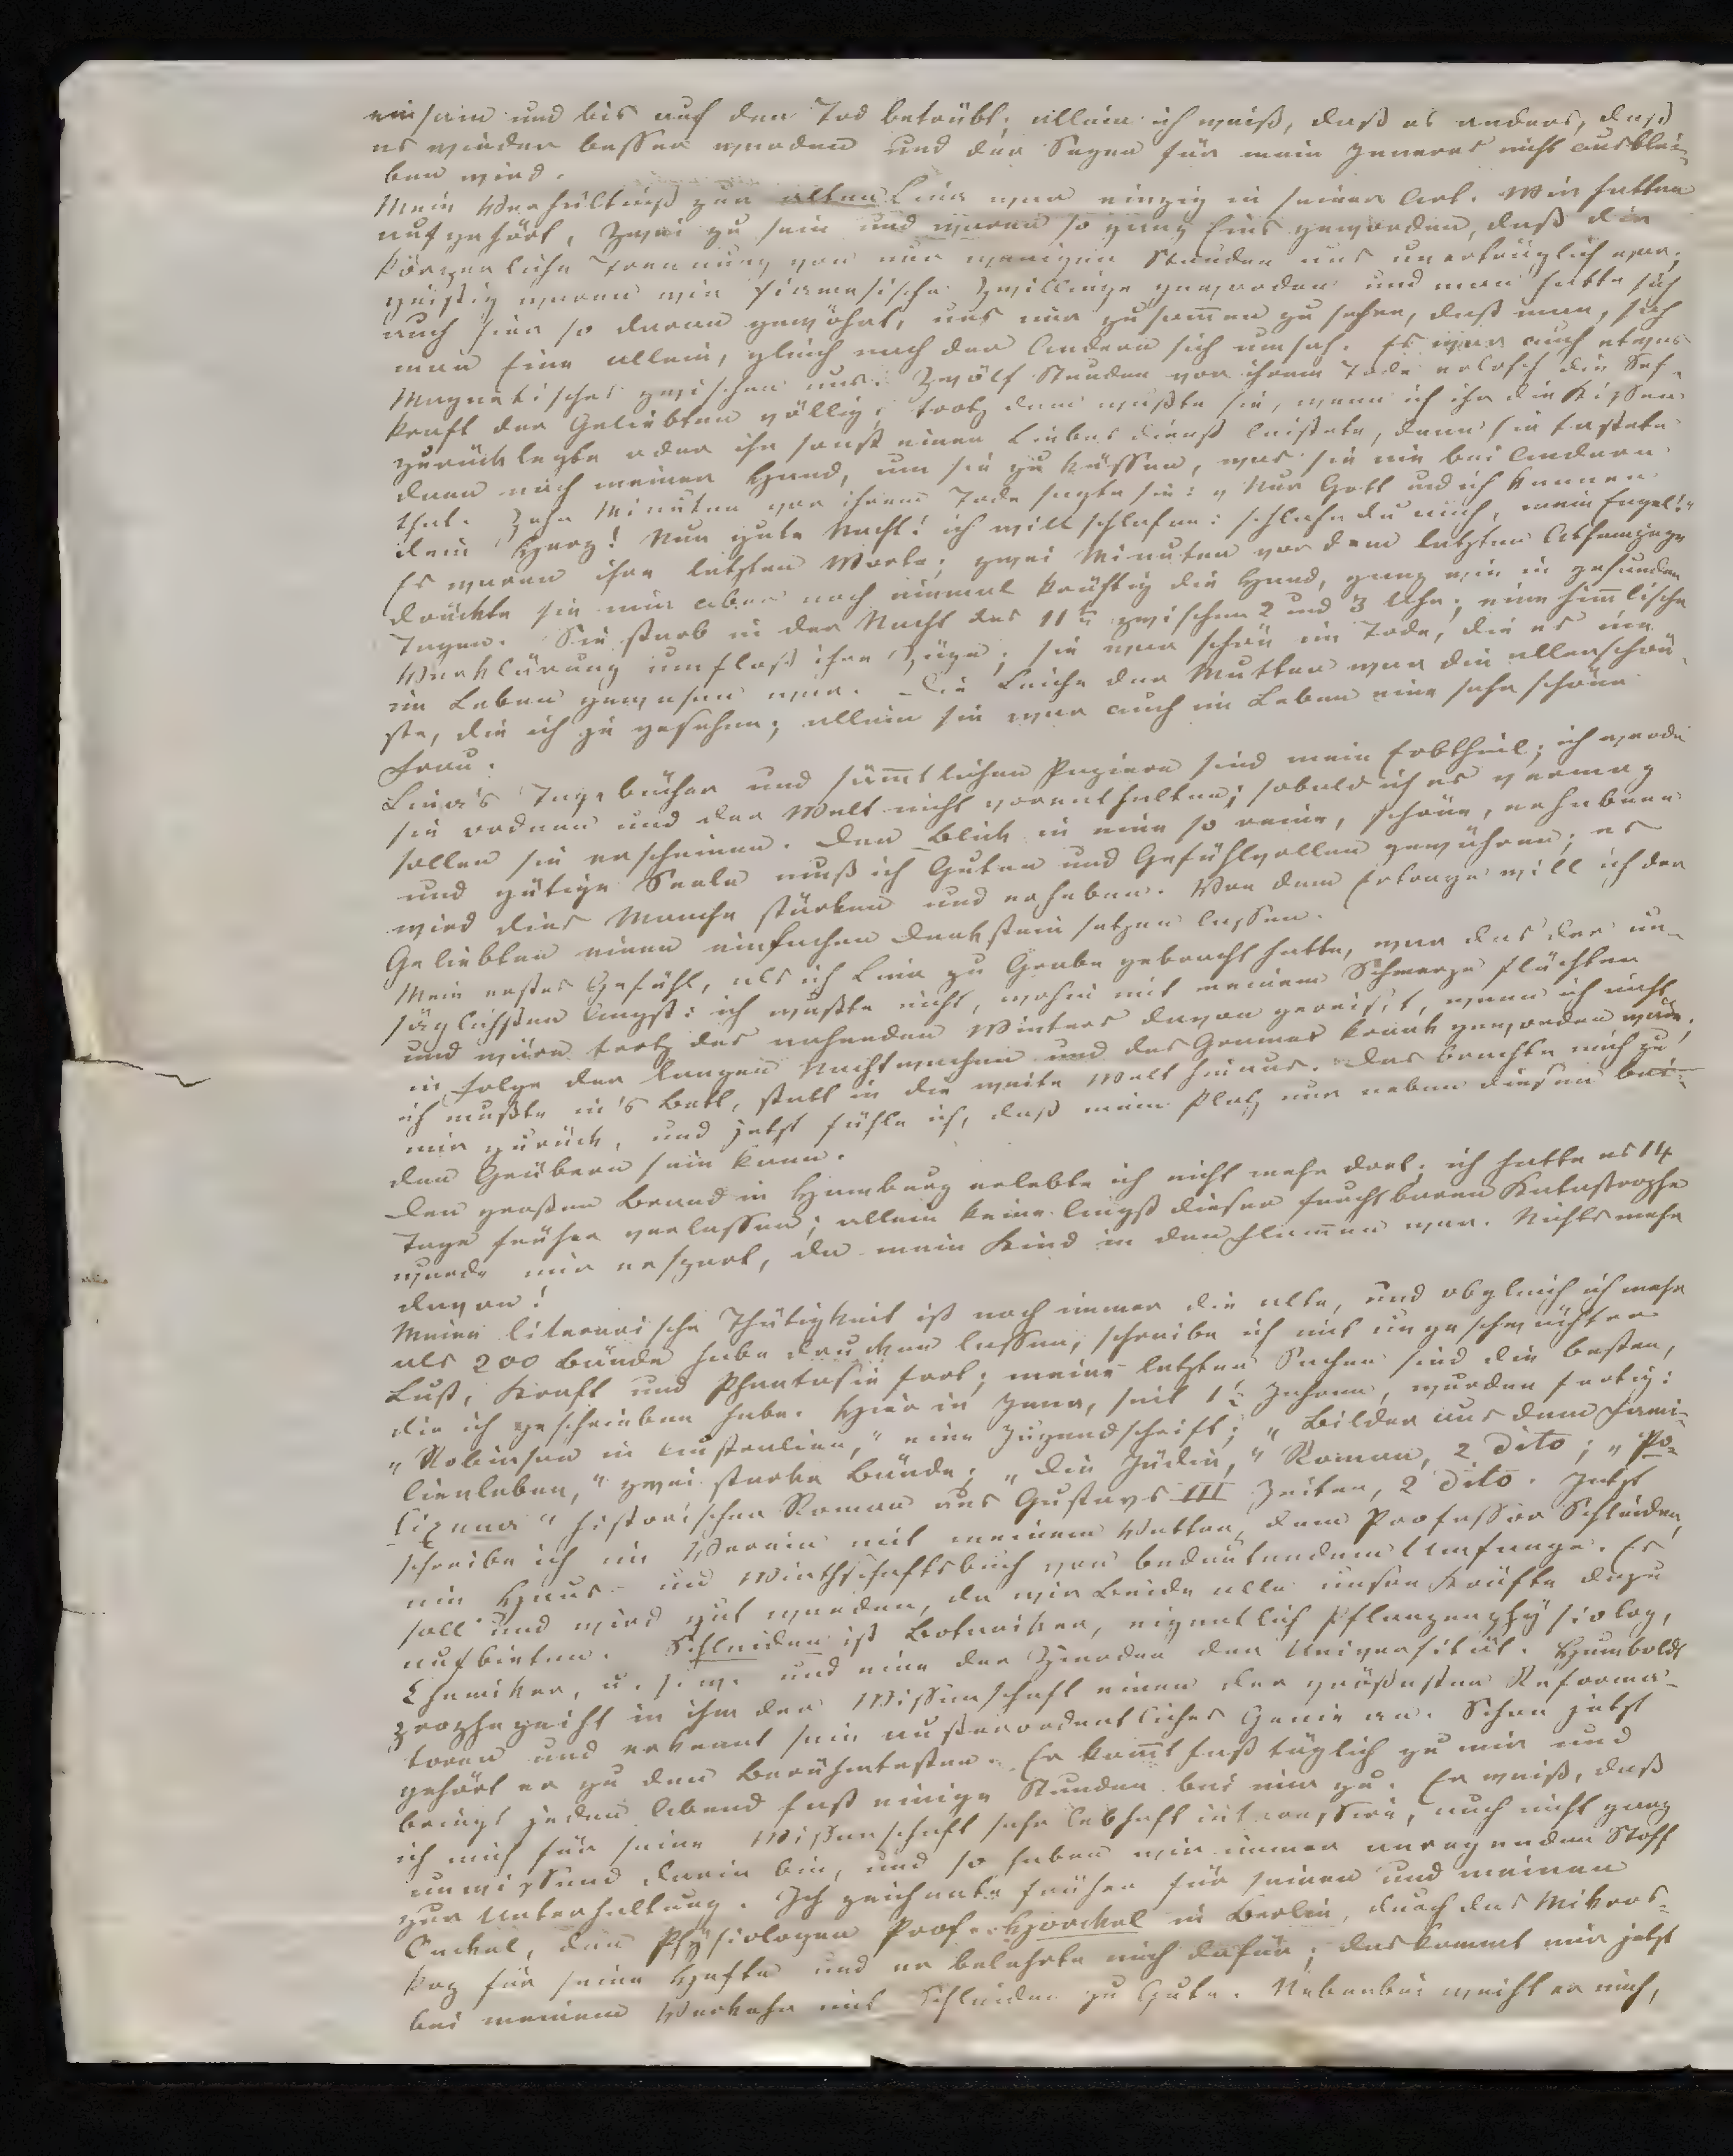 einsam und bis auf den Tod betrübt; allein ich weiß, daß es anders, daß
es wieder besser werden und der Segen für mein Inneres nicht ausblei-
ben wird.
Mein Verhältniß zur alten Lina war einzig in seiner Art. Wir hatten
aufgehört, Zwei zu sein und waren so ganz Eins geworden, daß die
körperliche Trennung von nur wenigen Stunden uns unerträglich war;
geistig waren wir siamesische Zwillinge geworden und man hatte sich
auch hier so daran gewöhnt, uns nur zusam̄en zu sehen, daß man, sah
man Eine allein, gleich nach der Andern sich umsah. Es war auch etwas
Magnetisches zwischen uns. Zwölf Stunden vor ihrem Tode erlosch die Seh-
kraft der Geliebten völlig; trotz dem wußte sie, wenn ich ihr die Kissen
zurücklegte oder ihr sonst einen Liebesdienst leistete, denn sie tastete
dann nach meiner Hand, um sie zu küssen, was sie nie bei Andern
that. Zehn Minuten vor ihrem Tode sagte sie: „Nur Gott und ich kennen
dein Herz! Nun gute Nacht! ich will schlafen: schlafe du auch, mein Engel!"
Es waren ihre letzten Worte; zwei Minuten vor dem letzten Athemzuge
drückte sie mir aber noch einmal kräftig die Hand, ganz wie in gesunden
Tagen. Sie starb in der Nacht des 11ten zwischen 2 und 3 Uhr; eine him̄lische
Verklärung umfloß ihre Züge; sie war schön im Tode, die es nie
im Leben gewesen war. – Die Leiche der Mutter war die allerschön-
ste, die ich je gesehen; allein sie war auch im Leben eine sehr schöne
Frau.
Lina's Tagebücher und säm̄tlichen Papiere sind mein Erbtheil; ich werde
sie ordnen und der Welt nicht vorenthalten; sobald ich es vermag
sollen sie erscheinen. Den Blick in eine so reine, schöne, erhabene
und gütige Seele muß ich Guten und Gefühlvollen gewähren; es
wird dies Manche stärken und erheben. Von dem Ertrage will ich der
Geliebten einen einfachen Denkstein setzen lassen.
Mein erstes Gefühl, als ich Lina zu Grabe gebracht hatte, war das der un-
säglichsten Angst: ich wußte nicht, wohin mit meinem Schmerze flüchten
und wäre trotz des nahenden Winters davon gereist, wenn ich nicht
in Folge der langen Nachtwachen und des Grames krank geworden wäre;
ich mußte in's Bett, statt in die weite Welt hinaus. Das brachte mich zu
mir zurück, und jetzt fühle ich, daß mein Platz nur neben diesen bei-
den Gräbern sein kann.
Den großen Brand in Hamburg erlebte ich nicht mehr dort; ich hatte es 14
Tage früher verlassen; allein keine Angst dieser furchtbaren Katastrophe
wurde mir erspart, da mein Kind in den Flam̄en war. Nichts mehr
davon!
Meine literarische Thätigkeit ist noch immer die alte, und obgleich ich mehr
als 200 Bände habe drucken lassen, schreibe ich mit ungeschwächter
Lust, Kraft und Phantasie fort; meine letzten Sachen sind die besten,
die ich geschrieben habe. Hier in Jena, seit 1½ Jahren, wurden fertig:
„Robinson in Australien," eine Jugendschrift; „Bilder aus dem Fami-
lienleben," zwei starke Bände; „die Jüdin," Roman, 2 dito; „Po-
lixena" historischer Roman aus Gustavs III Zeiten, 2 dito. Jetzt
schreibe ich im Verein mit meinem Vetter, dem Professor Schleiden,
ein Haus- und Wirthschaftsbuch von bedeutendem Umfange. Es
soll und wird gut werden, da wir Beide alle unsre Kräfte dazu
aufbieten. Schleiden ist Botaniker, eigentlich Pflanzenphysiolog,
Chemiker, u. s. w. und eine der Zierden der Universität. Humboldt
prophezeiht in ihm der Wissenschaft einen der größesten Reforma-
toren und erkennt sein außerordentliches Genie an. Schon jetzt
gehört er zu den Berühmtesten. Er kom̄t fast täglich zu mir und
bringt jeden Abend fast einige Stunden bei mir zu. Er weiß, daß
ich mich für seine Wissenschaft sehr lebhaft interessire, auch nicht ganz
unwissend darin bin, und so haben wir immer anregenden Stoff
zur Unterhaltung. Ich zeichnete früher für seinen und meinen
Onckel, den Physiologen Prof. Horckel in Berlin, durch das Mikros-
kop für seine Hefte und er belehrte mich dafür; das kommt mir jetzt
bei meinem Verkehr mit Schleiden zu Gute. Nebenbei weiht er mich,